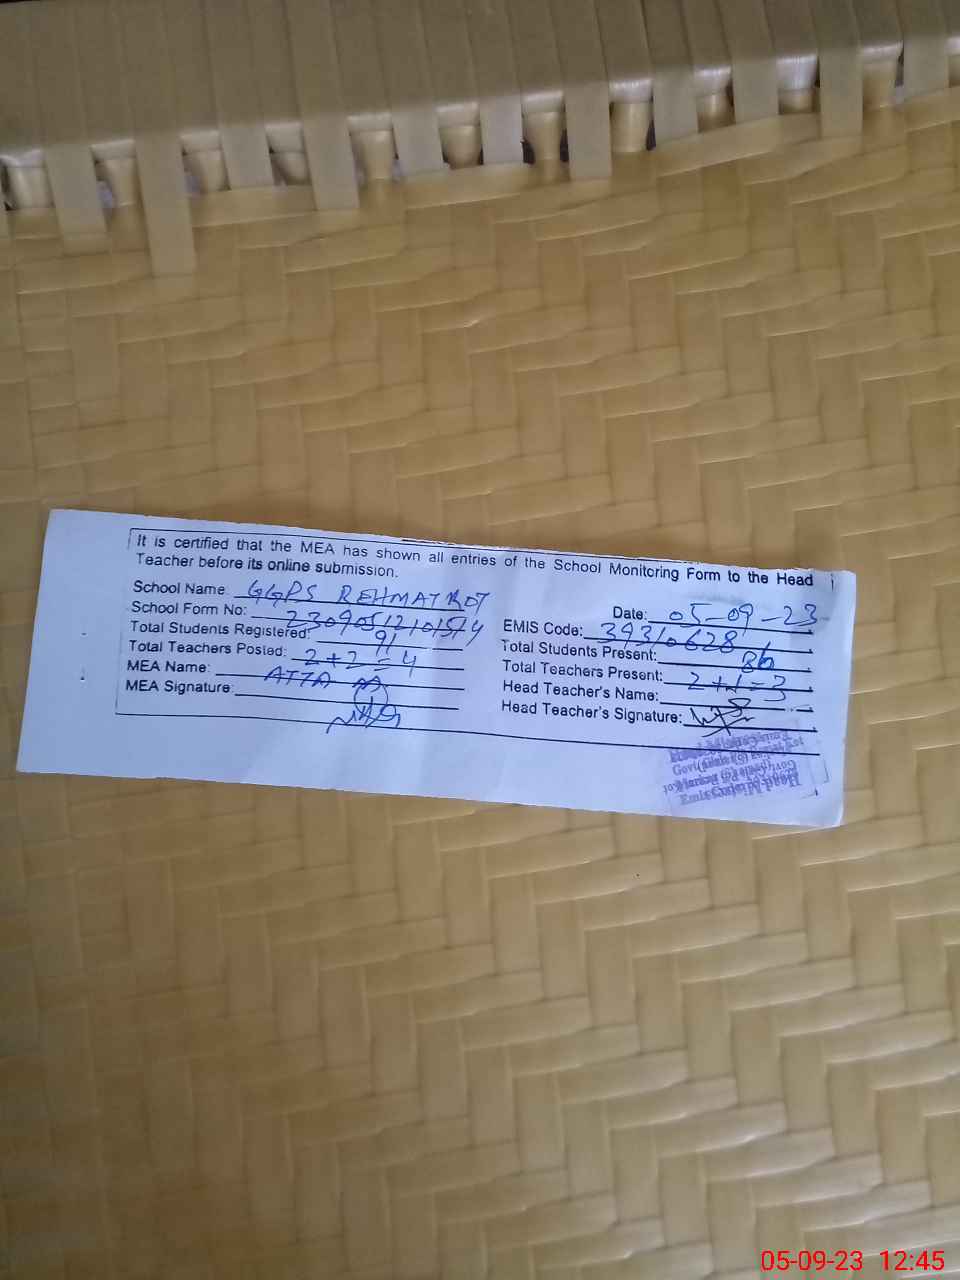 It is certified that the MEA has shown all entries of the School Monitoring Form to the Head
Teacher before its online submission.
School Name: GGPS REHMAT KOT
Date: 05-09-23
School Form No:
EMIS Code: 39310628
Total Students Registered: 91
Total Students Present: 86
Total Teachers Posted: 2+2=4
Total Teachers Present: 2+1=3
MEA Name: ATTA
Head Teacher's Name:
MEA Signature:
Head Teacher's Signature:
05-09-23 12:45